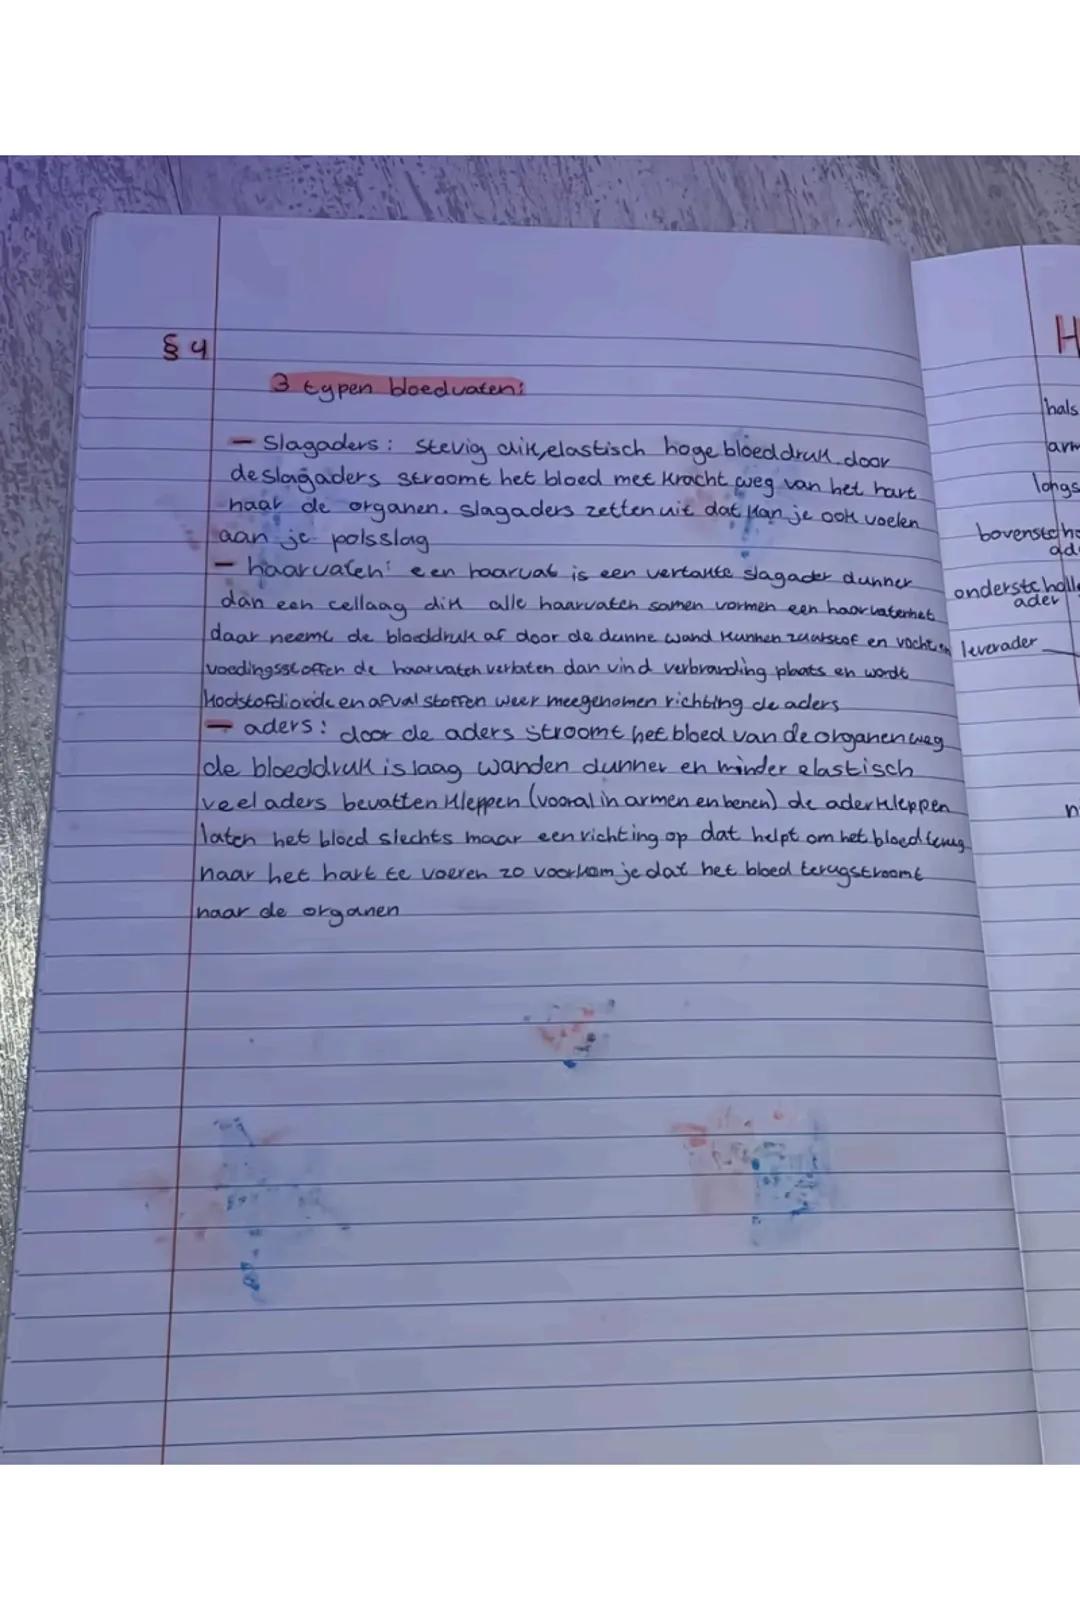 § 4
3 typen bloedvaten:
- Slagaders: stevig dik, elastisch hoge bloeddruk door
de slagaders stroomt het bloed met kracht weg van het hart
naar de organen. slagaders zetten uit dat kan je ook voelen
aan je polsslag
- haarvaten: een haarvat is een vertakte slagader dunner
dan een cellaag dik alle haarvaten samen vormen een haarvatennet
daar neemt de bloeddruk af door de dunne wand kunnen zuurstof en vocht en
voedingsstoffen de haarvaten verlaten dan vind verbranding plaats en wordt
koolstofdioxide en afval stoffen weer meegenomen richting de aders
- aders: door de aders stroomt het bloed van de organen weg
de bloeddruk is laag wanden dunner en minder elastisch
veel aders bevatten kleppen (vooral in armen en benen) de aderkleppen
laten het bloed slechts maar een richting op dat helpt om het bloed terug
naar het hart te voeren zo voorkom je dat het bloed terugstroomt
naar de organen
H
hals
arm
longs
bovenste ho
ad
onderste holle
ader
leverader
n